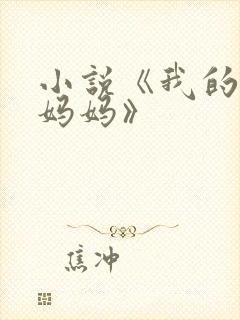 小说《我的
妈妈》
焦冲